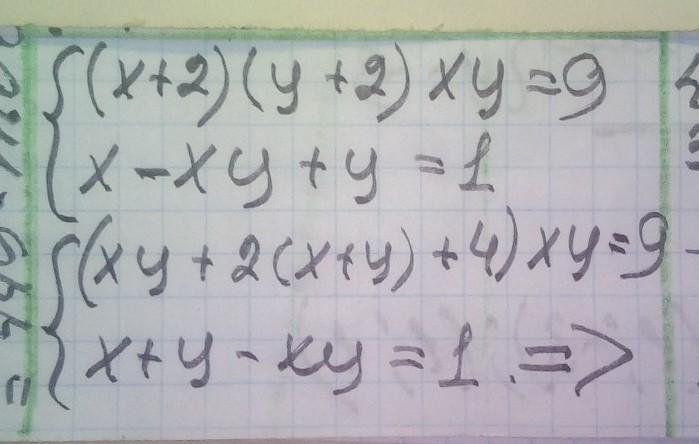 (x+2)(y+2)xy=9
x-xy+y=1
(xy+2(x+y)+4)xy=9
x+y-xy=1. =>